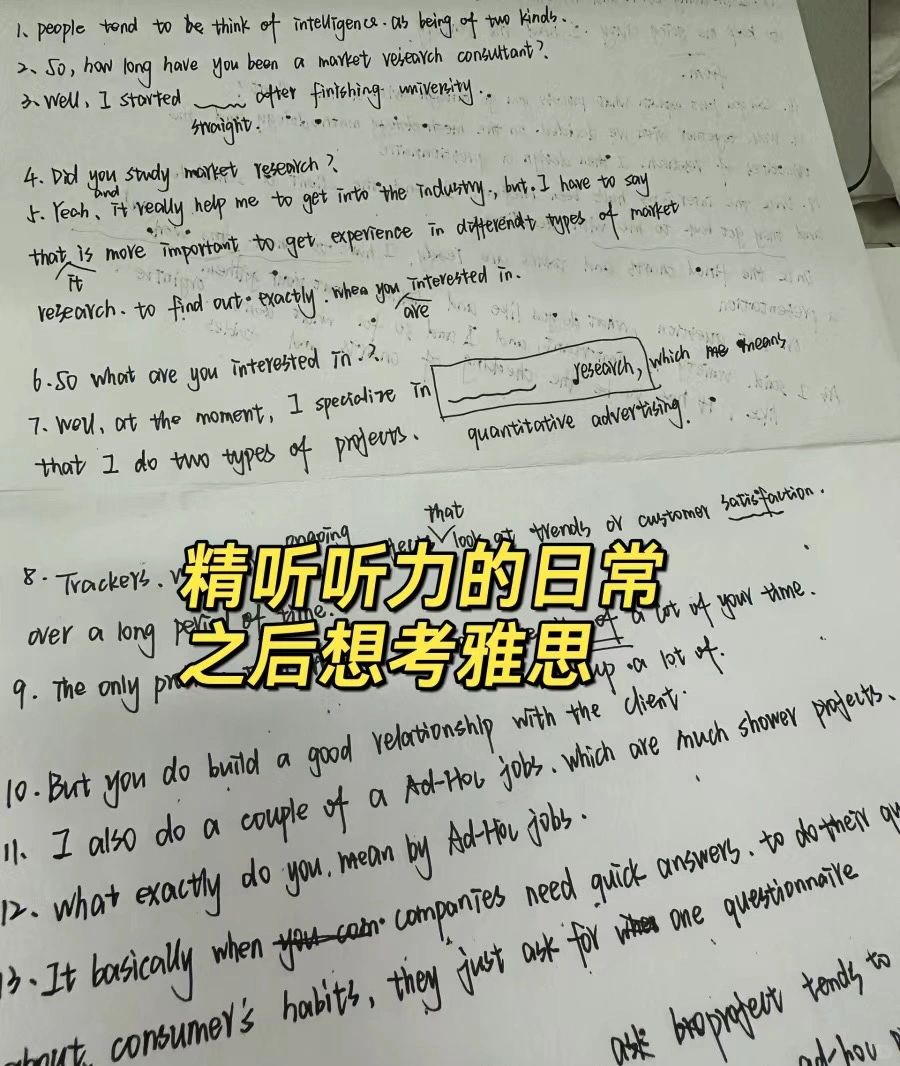 1、people tend to be think of intelligence. as being of two kinds.
2、So, how long have you been a market research consultant?
3、Well, I started ____ after finishing university.
straight.
4. Did you study market research?
and
5. Yeah, it really help me to get into the industry, but. I have to say
that is more important to get experience in differendt types of market
it
research. to find out exactly. when you interested in.
are
6. So what are you interested in.?
7. Well, at the moment, I specialize in ____ research, which me means
quantitative advertising.
that I do two types of projects.
that
ongoing
8. Trackers. look at trends or customer satisfaction.
over a long period of time.
精听听力的日常
之后想考雅思
9. The only of a lot of your time.
up a lot of.
10. But you do build a good relationship with the client.
11、I also do a couple of a Ad-Hoc jobs. which are much shower projects.
12、what exactly do you. mean by Ad-Hoc jobs.
13. It basically when you can companies need quick answers. to do their qu
about consumer's habits, they just ask for when one questionnaire
ask broproject tends to
ad-hoc